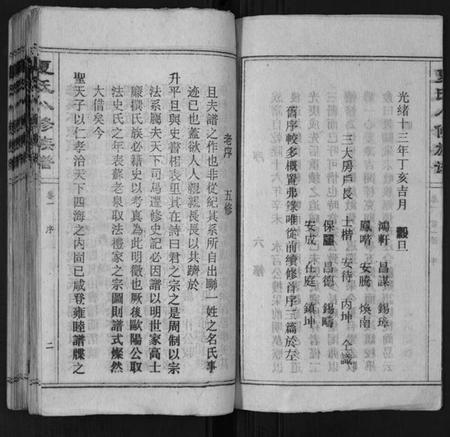 光緒十三年丁亥吉月　穀旦
鴻軒　昌謀　錫璋
鳳喈　安騰　煥南
三大房戶長　士楷　安待　丙坤　仝識
保羅　昌德　錫疇
安成　任庭　鎮坤
舊序較多概置弗錄唯從前續修首序三篇於左
老序　五修
且夫譜之作也非從紀其系所自出聯一姓之名氏事
迹已也蓋欲人人親親長長以共躋於
升平且與史書相表裏其在詩曰君之宗之是周制以宗
法系屬夫天下司馬遷修史記必因譜以明世家高士
廉撰氏族必藉史以考真為此明徵也厥後歐陽公取
法史氏之年表蘇老泉取法禮家之宗圖則譜式燦然
大備矣今
聖天子以仁孝治天下四海之內固已咸登雍睦譜牒之
夏氏八修族譜
卷一　序
二